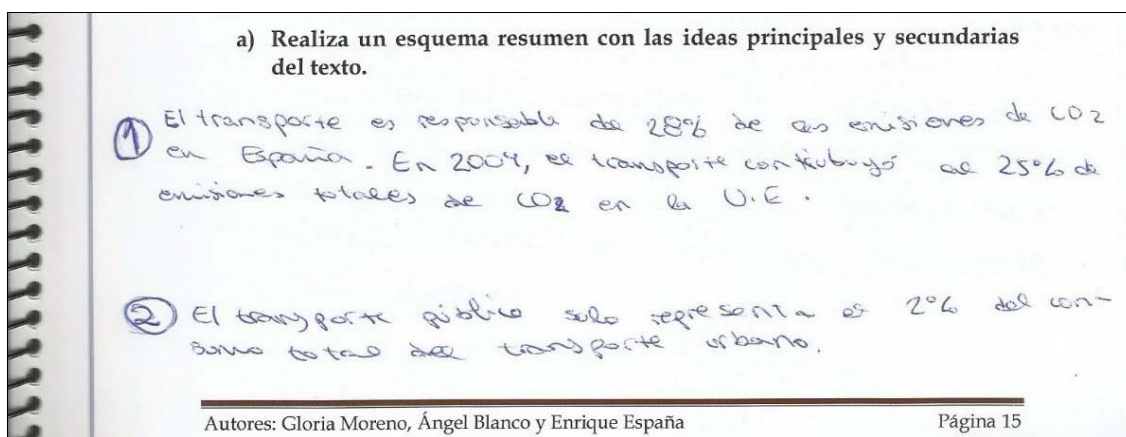 a) Realiza un esquema resumen con las ideas principales y secundarias
del texto.
① El transporte es responsable de 28% de las emisiones de CO2
en España. En 2004, el transporte contribuyó al 25% de
emisiones totales de CO2 en la U.E.
② El transporte público solo representa el 2% del con-
sumo total del transporte urbano.
Autores: Gloria Moreno, Ángel Blanco y Enrique España Página 15